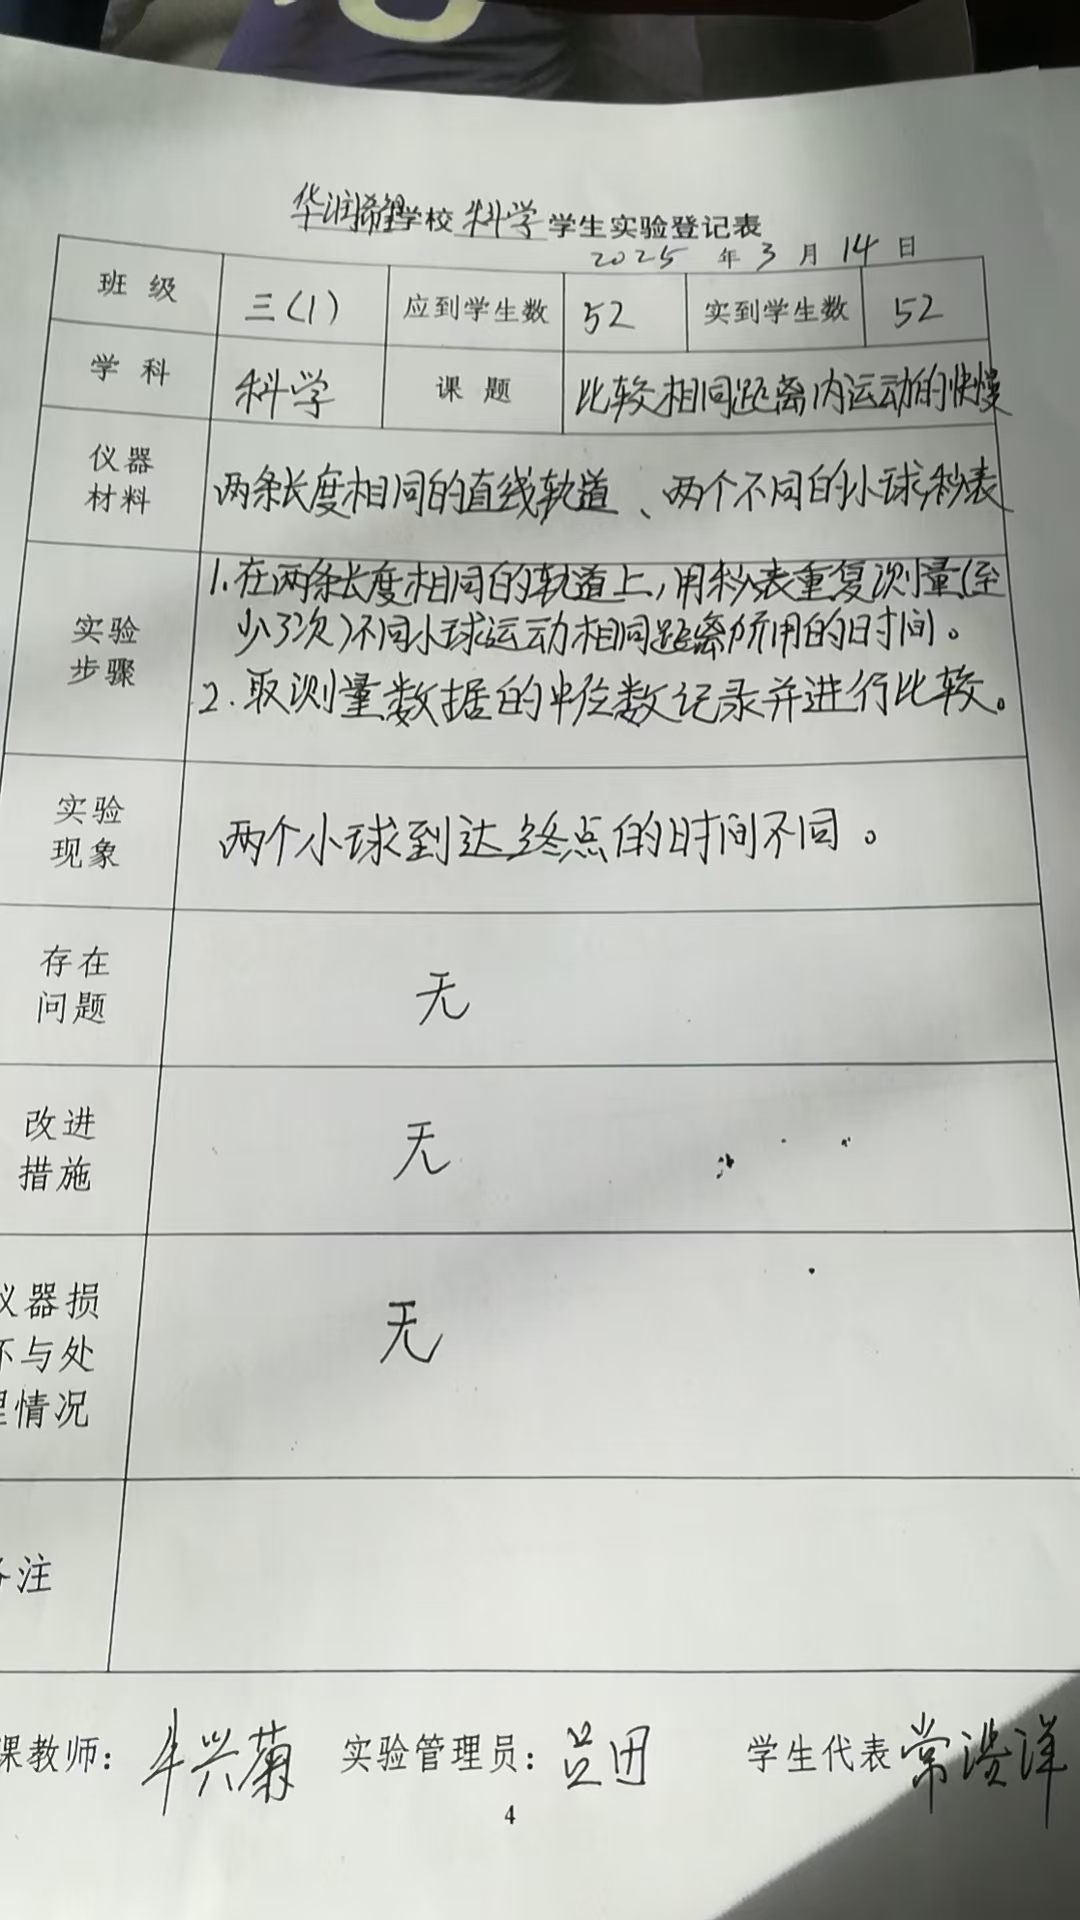 华润希望学校 科学 学生实验登记表
2025 年 3 月 14 日
班级 三(1) 应到学生数 52 实到学生数 52
学科 科学 课题 比较相同距离内运动的快慢
仪器
材料
两条长度相同的直线轨道、两个不同的小球,秒表
实验
步骤
1.在两条长度相同的轨道上,用秒表重复测量(至
少3次)不同小球运动相同距离所用的时间。
2.取测量数据的中位数记录并进行比较。
实验
现象
两个小球到达终点的时间不同。
存在
问题
无
改进
措施
无
仪器损
坏与处
理情况
无
备注
课教师: 兴菊 实验管理员: 学生代表 常 洋
4